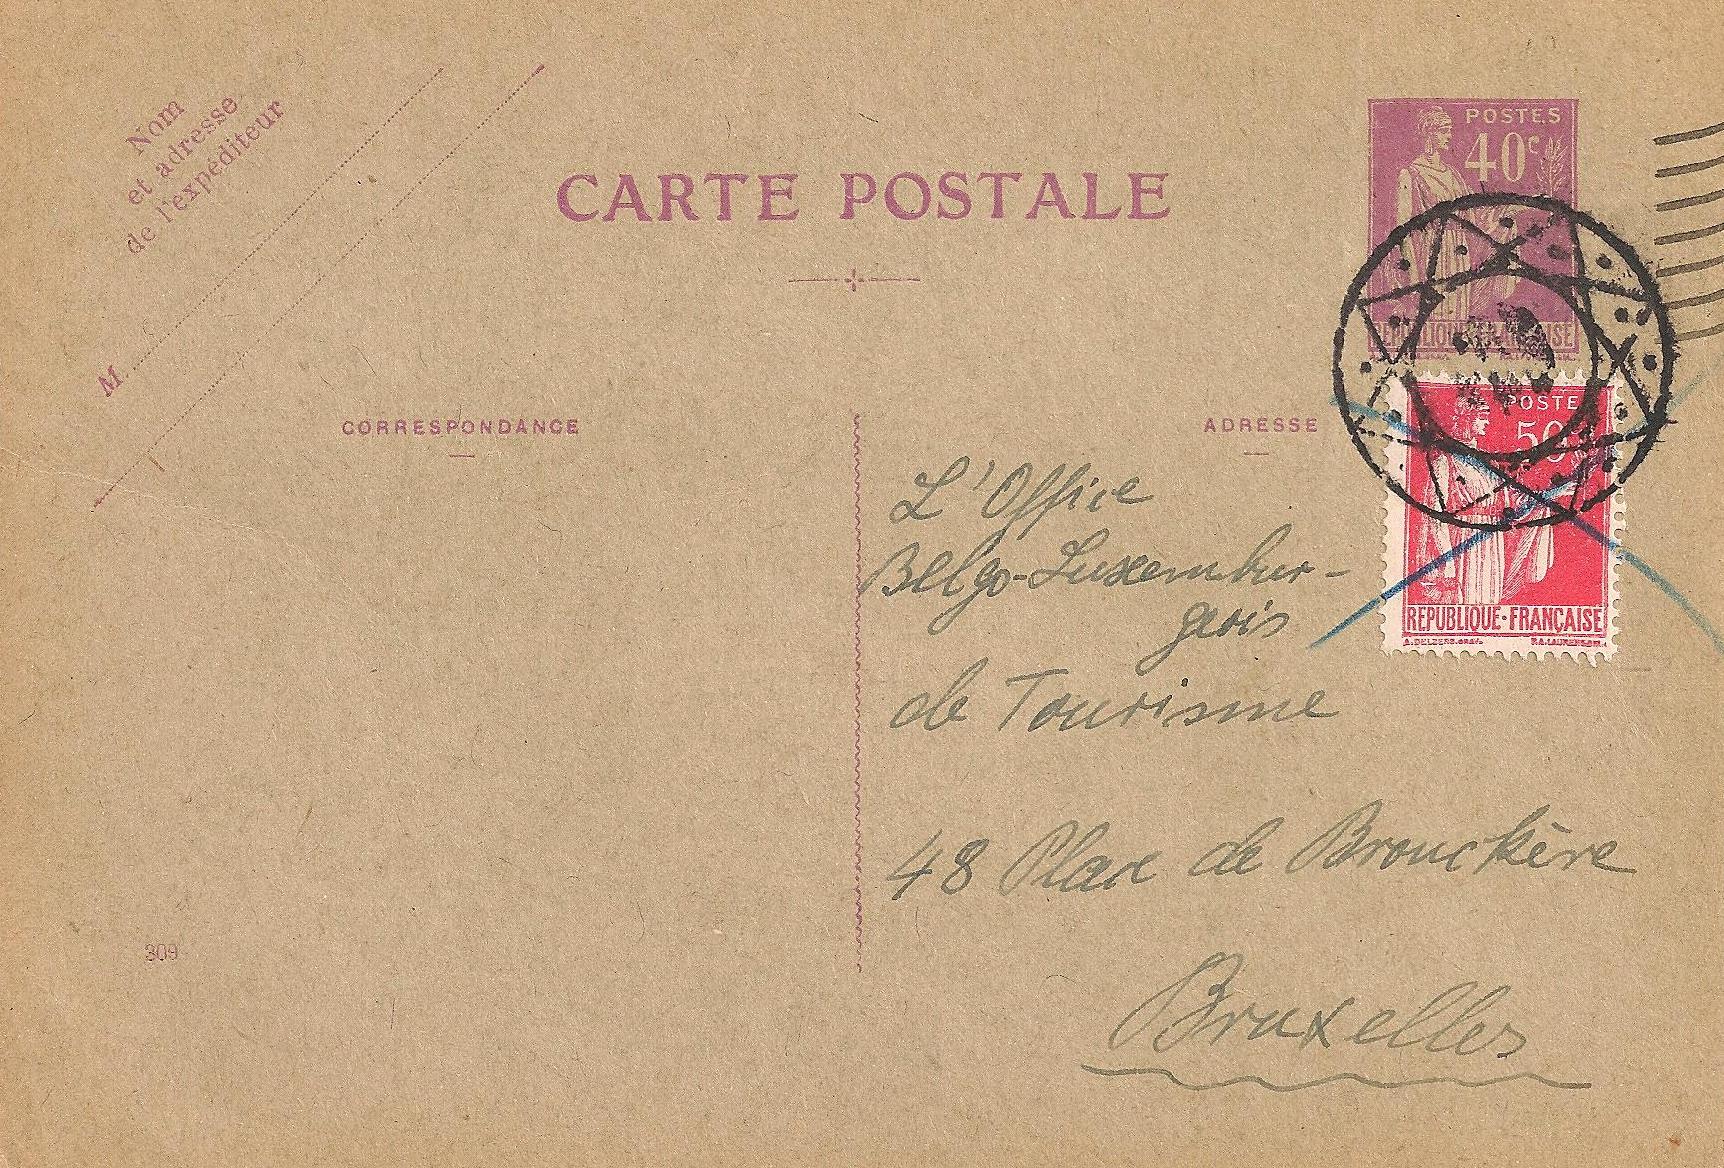 Nom
et adresse
de l'expéditeur
M
CARTE POSTALE
POSTES
40c
REPUBLIQUE FRANÇAISE
CORRESPONDANCE
ADRESSE
POSTE
50
REPUBLIQUE·FRANÇAISE
L'Office
Belgo-Luxembur-
geois
de Tourisme
48 Place de Brouckère
Bruxelles
309